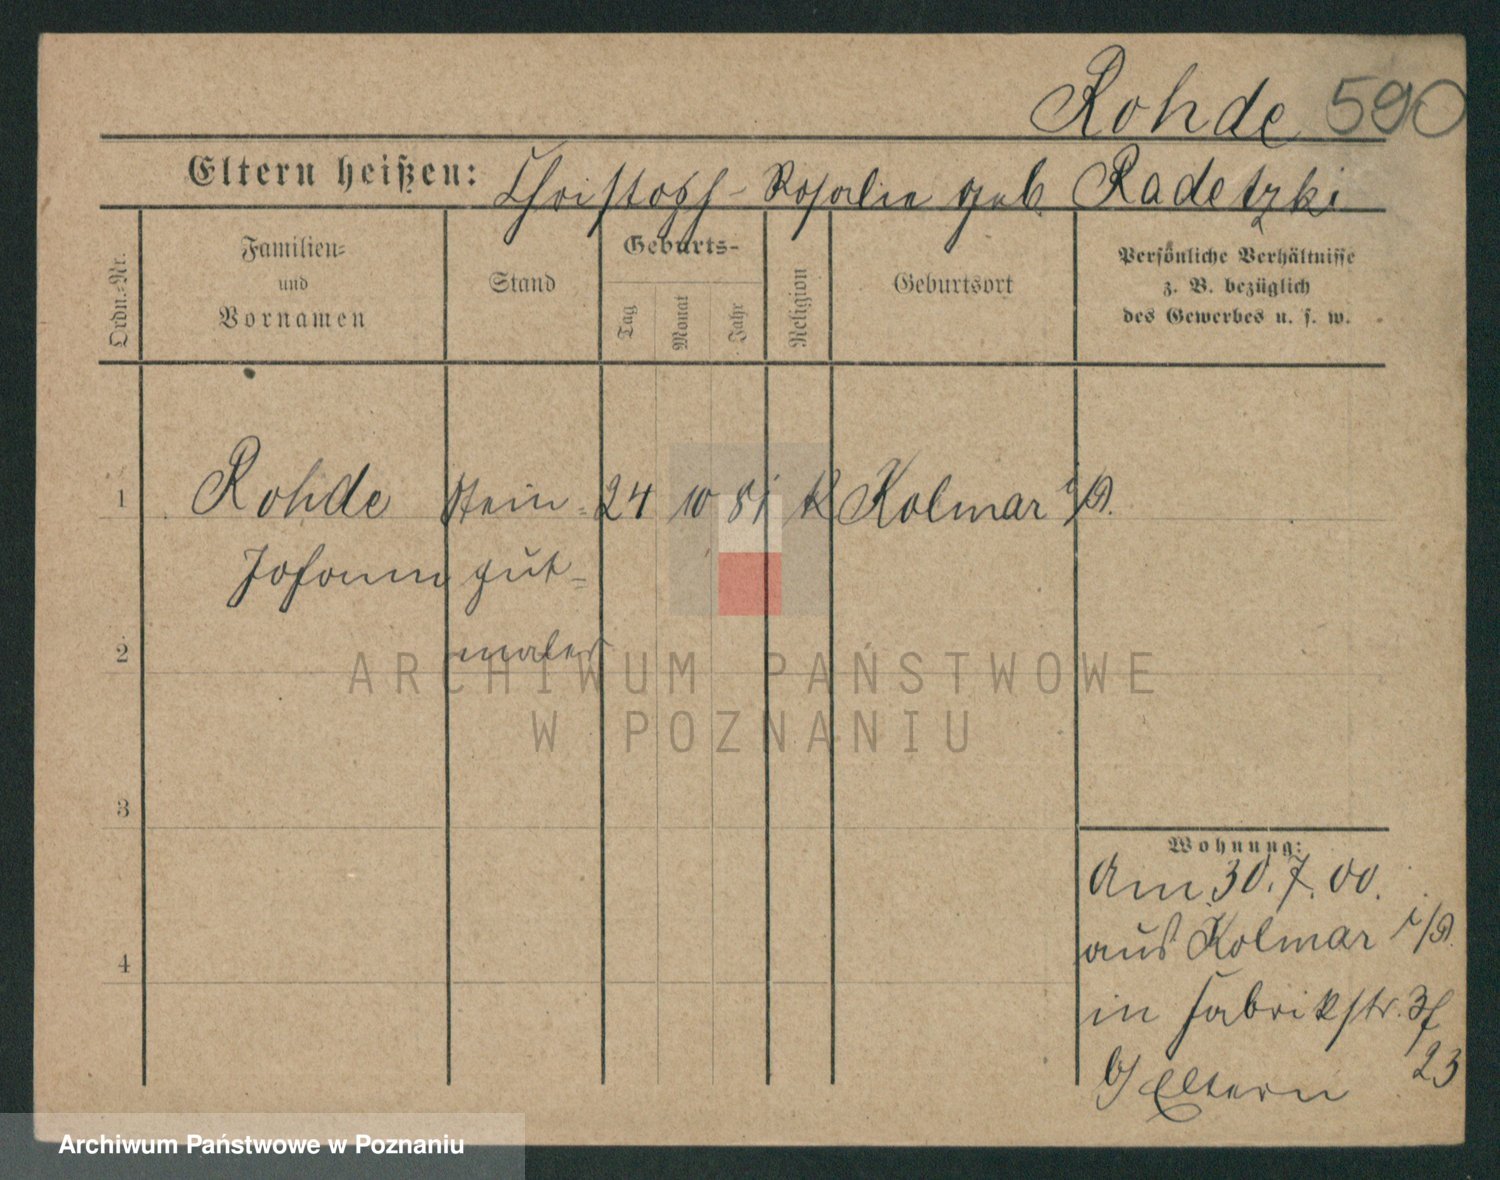 Rohde 590
Eltern heißen: Christoph - Rosalie geb Radetzki
Ordn.-Nr.
Familien-
und
Vornamen
Stand
Geburts-
Tag
Monat
Jahr
Religion
Geburtsort
Persönliche Verhältnisse
z. B. bezüglich
des Gewerbes u. s. w.
1 Rohde Stein- 24 10 81 k Kolmar i/P.
Johann gut-
2 maler
3
4
Wohnung:
Am 30.7.00.
aus Kolmar i/P.
in Fabrikstr.
23
b/ Eltern
ARCHIWUM PAŃSTWOWE
W POZNANIU
Archiwum Państwowe w Poznaniu